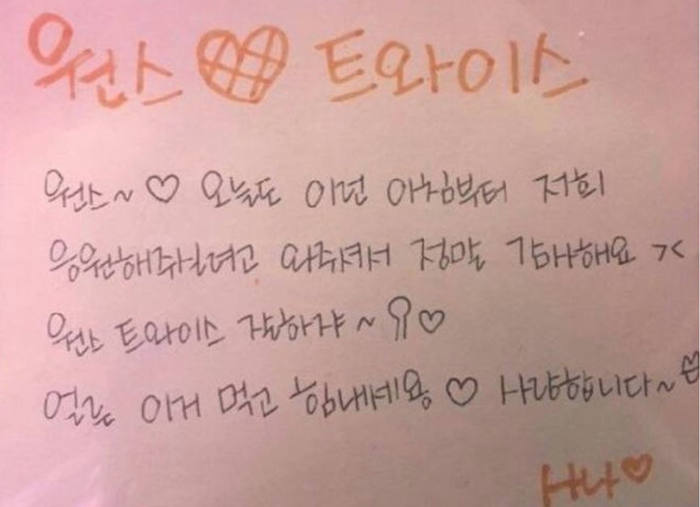 원스♡ 트와이스
원스~♡ 오늘도 이런 아침부터 저희
응원해주실려고 와주셔서 정말 감사해요 ><
원스 트와이스 잘하쟈~ ♡
얼른 이거 먹고 힘내세용♡ 사랑합니다~
♡